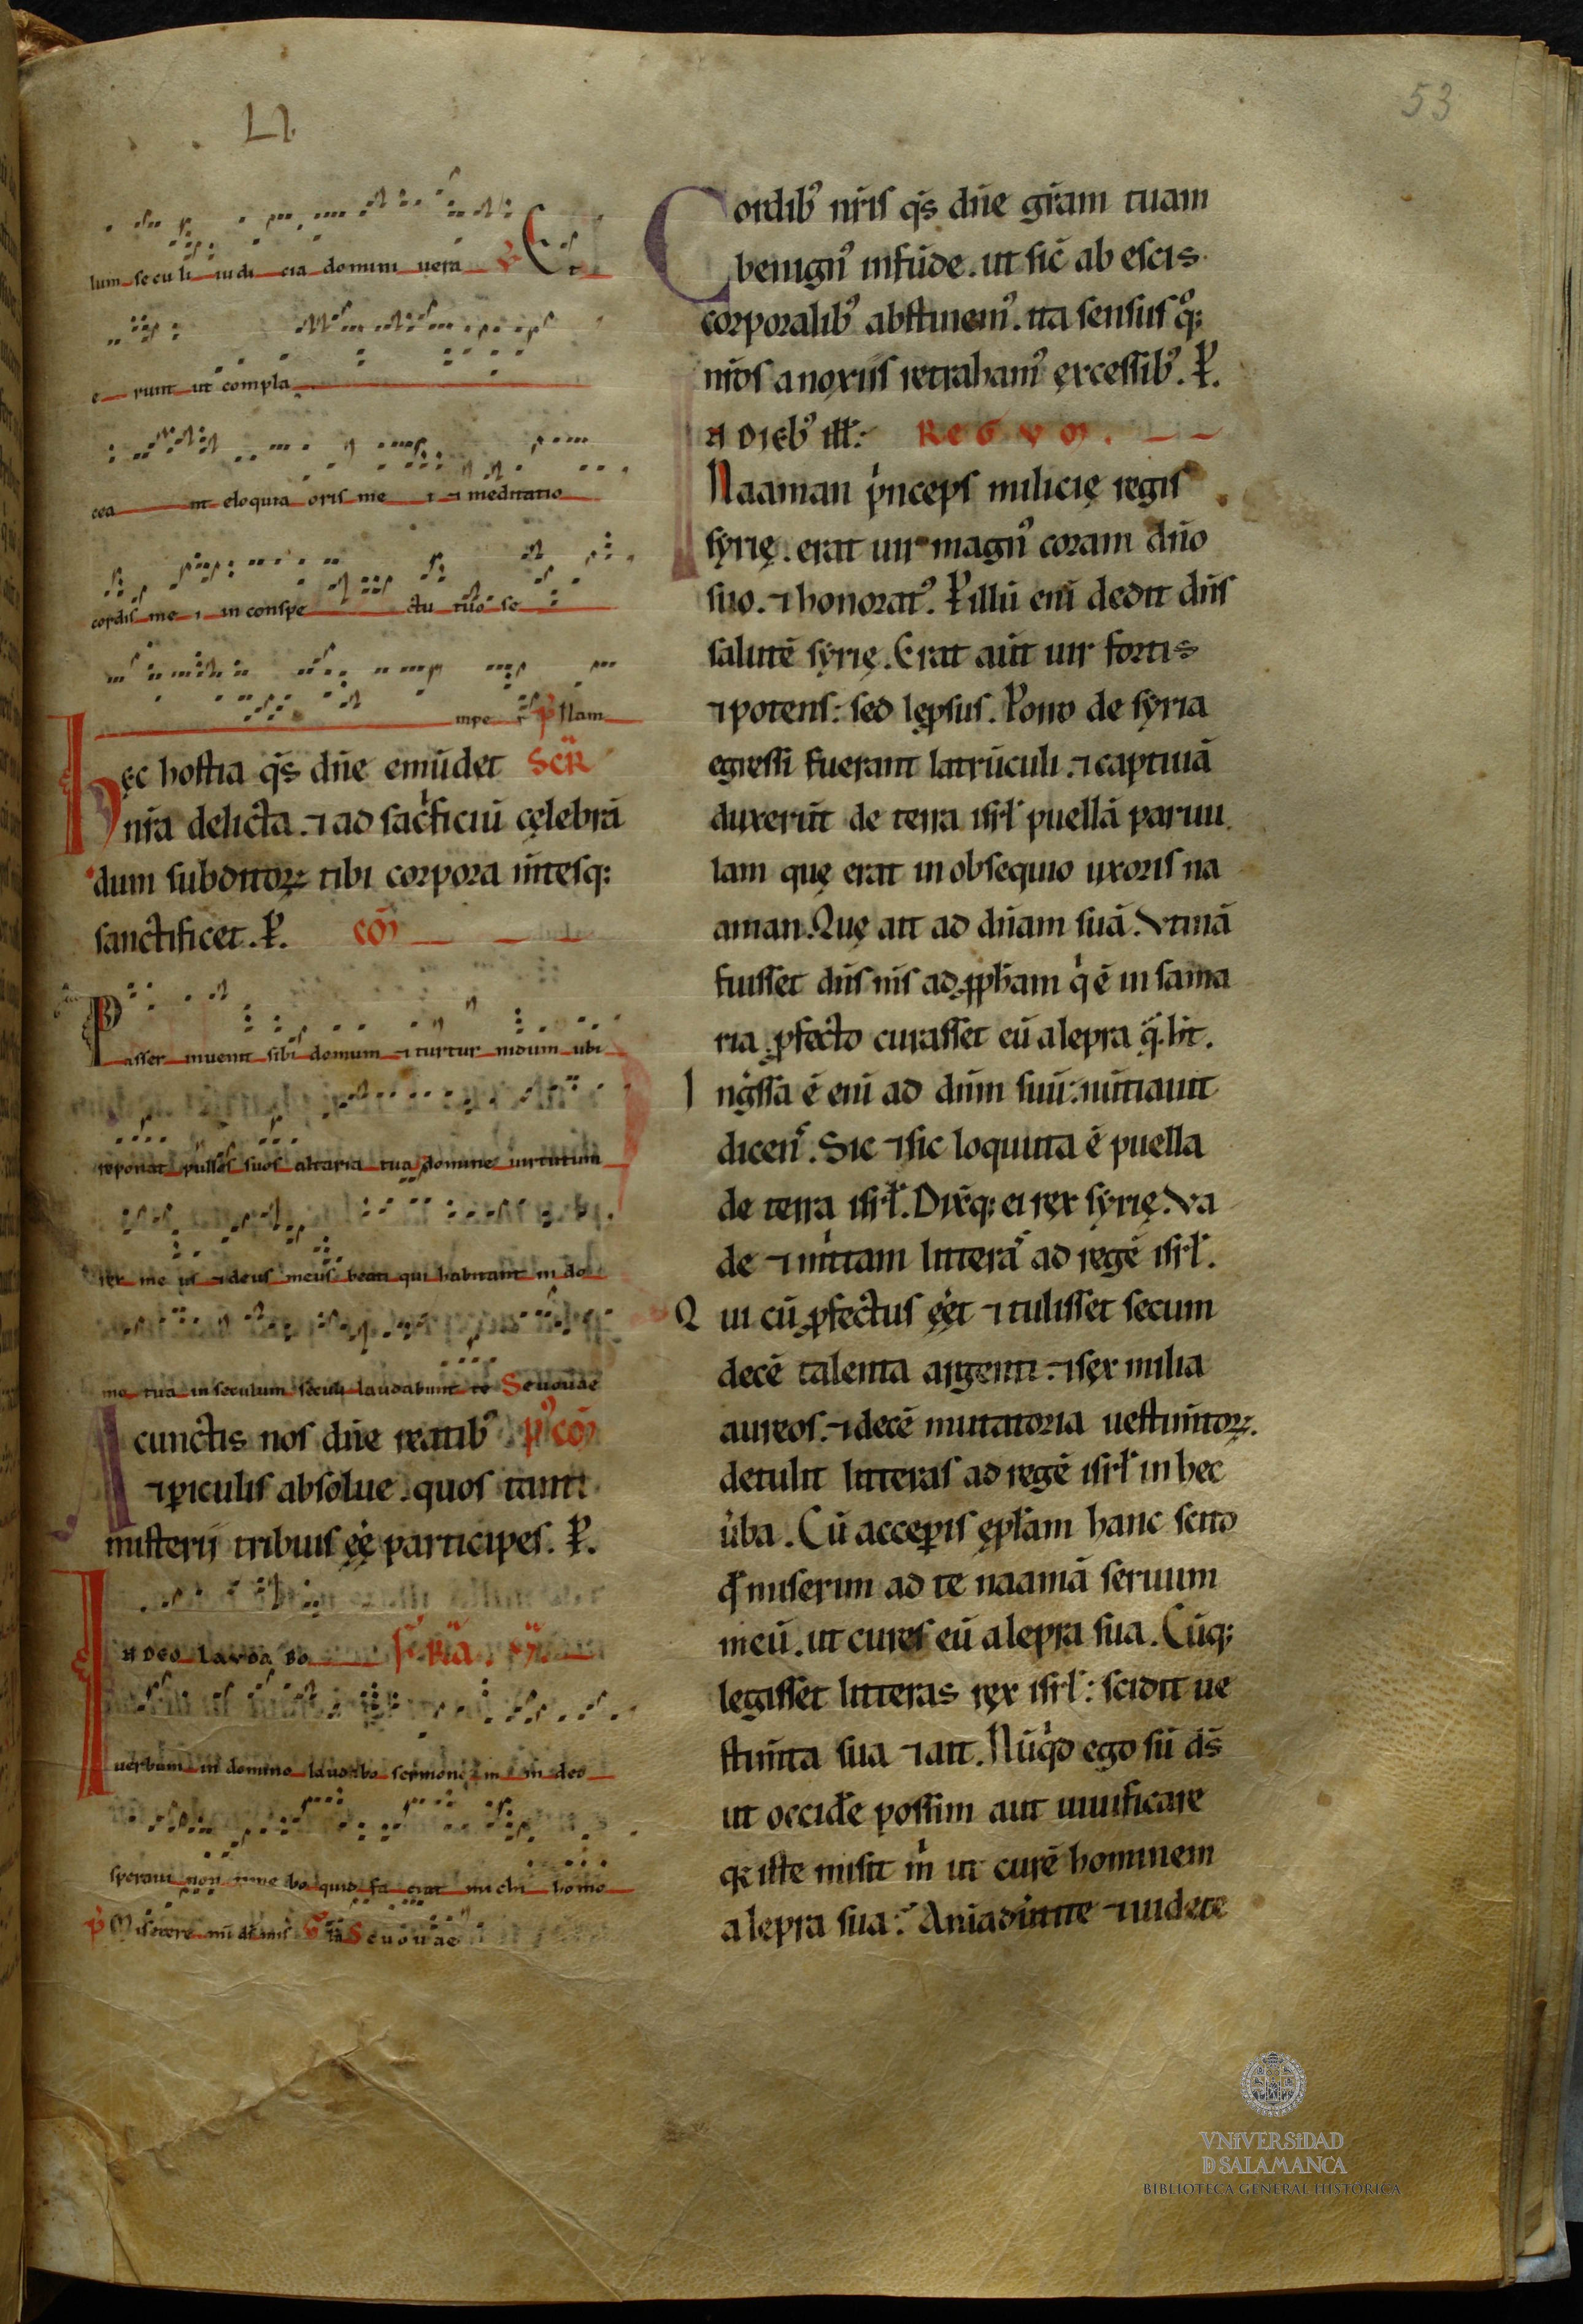 LI.
53
lum seculi iudicia domini uera ℣ Et
erunt ut compla
cea nt eloquia oris me i ⁊ meditatio
cordis me i in conspe ctu tuo se
mper p̄ Nam
Hęc hostia q̄s dn̄e emūdet Scr̄
nr̄a delicta. ⁊ ad sacͥficiū cęlebrā
dum subditoꝝ tibi corpora m̄tesq;
sanctificet. P̲. cō
Passer inuenit sibi domum ⁊ turtur nidum ubi
reponat pullos suos altaria tua domine uirtutum
rex me us ⁊ deus meus beati qui habitant in do
mo tua in seculum seculi laudabunt te Seuouae
A cunctis nos dn̄e reatib⁹ p⁹cō
⁊ ꝑiculis absolue. quos tanti
misterij tribuis ęę participes. P̲.
IN DEO laudabo f̄rīa. ij.
uerbum in domino laudabo sermone m in deo
speraui non time bo quid fa ciat michi homo
p̄ Miserere mī ds̄ mis̄ Gła Seuouae
Cordib⁹ nr̄is q̄s dn̄e gr̄am tuam
benign⁹ infūde. ut sic̄ ab escis
corporalib⁹ abstinem⁹. ita sensus q͛;
nr̄os a noxiis retraham⁹ ęxcessib⁹. P̲.
IN DIEb⁹ ill̄: REGVM.
Naaman pͥnceps milicię regis
syrię. erat uir magn⁹ coram dn̄o
suo. ⁊ honorat⁹. P̲ illū enī dedit dn̄s
salutē syrię. Erat aūt uir fortis
⁊ potens: sed lęprsus. Porro de syria
egressi fuerant latrūculi. ⁊ captiuā
duxerūt de terra isrl̄ puellā paruu
lam quę erat in obsequio uxoris na
aman. Quę ait ad dn̄am suā. Vtinā
fuisset dn̄s m̄s ad ꝓph̄am qͥ ē in sama
ria. ꝓfecto curasset eū a lepra q̄. h̄t.
Ingͬssa ē enī ad dn̄m suū: nūtiauit
dicens. Sic ⁊ sic loquuta ē puella
de terra isrl̄. Dix̄q; ei ręx syrię. Va
de ⁊ mittam litteras ad regē isrl̄.
Qui cū ꝓfectus ęēt ⁊ tulisset secum
decē talenta argenti. ⁊ sęx milia
aureos. ⁊ decē mutatoria uestimtoꝝ.
detulit litteras ad regē isrl̄ in hec
ūba. Cū acceꝑis ępl̄am hanc scito
ꝙ miserim ad te naamā seruum
meū. ut cures eū a lepra sua. Cūq;
legisset litteras ręx isrl̄: scidit ue
stimta sua ⁊ ait. Nūqͥd ego sū ds̄
ut occid̄e possim aut uiuificare
qꝛ iste misit m̄ ut curē hominem
a lepra sua? Aniaduūtite ⁊ uidete
VNIVERSIDAD
D SALAMANCA
BIBLIOTECA GENERAL HISTÓRICA